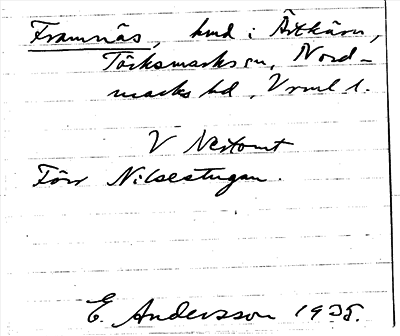 Framnäs, hmd i Årtkärn,
Töcksmarks sn, Nord-
marks hd, Vrml l.
V
Förr Nilsestugan.
E. Andersson 1935.